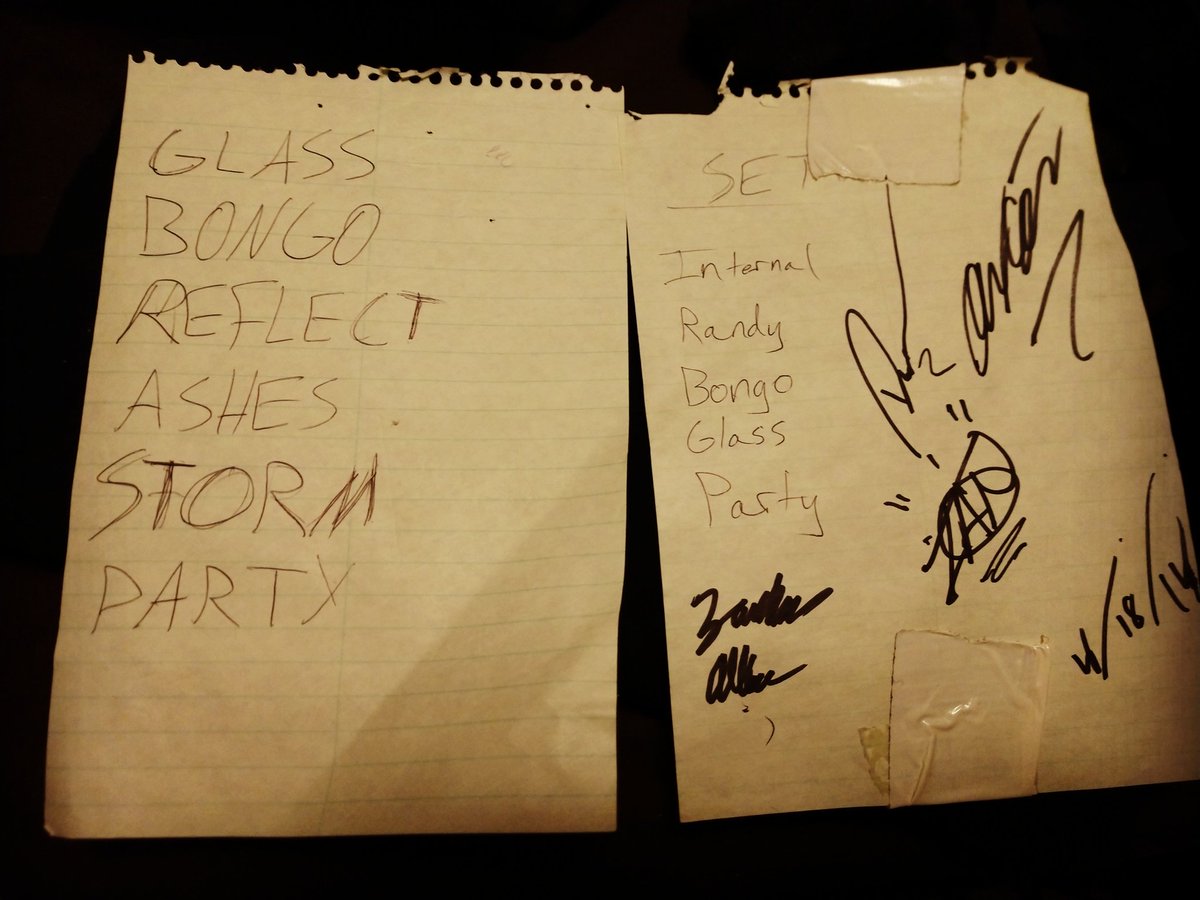 GLASS
BONGO
REFLECT
ASHES
STORM
PARTY
SET
Internal
Randy
Bongo
Glass
Party
4/18/14